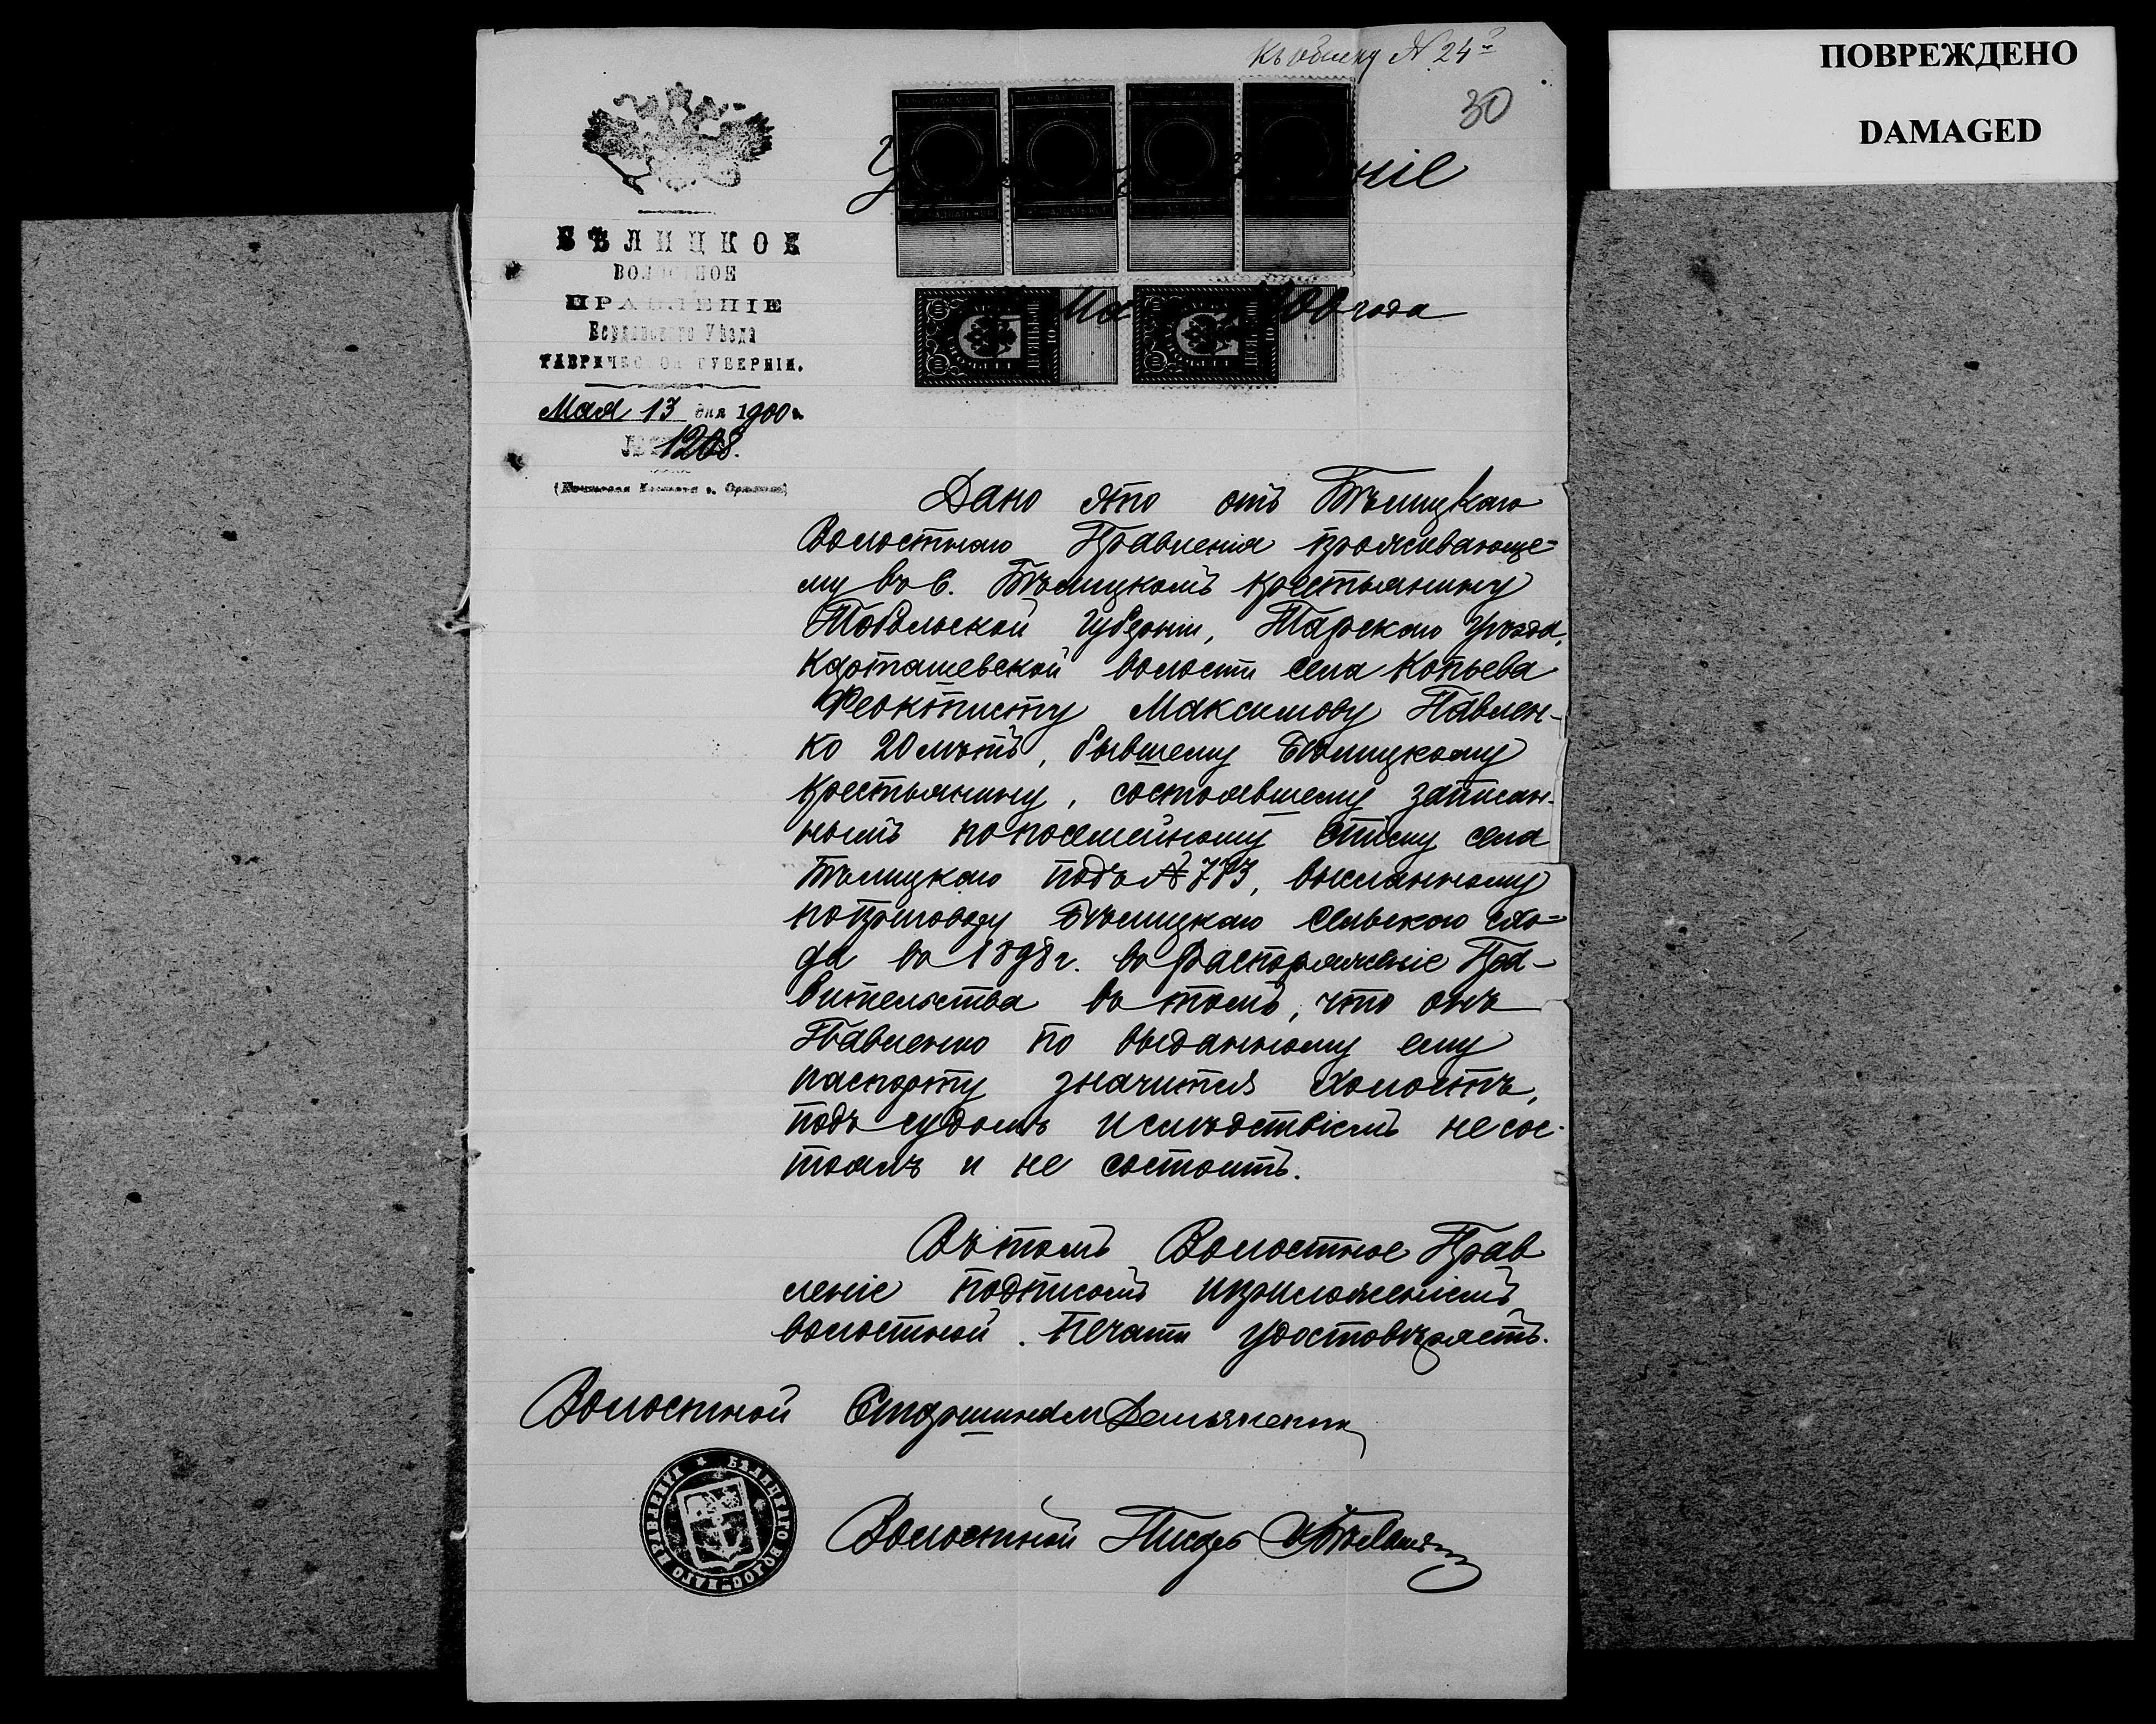 Къ обыску № 24й
30
БѢЛИЦКОЕ
ВОЛОСТНОЕ
ПРАВЛЕНІЕ
Бердянскаго Уѣзда
ТАВРИЧЕСКОЙ ГУБЕРНІИ.
Мая 13 дня 1900 г.
№ 1208.
У ніе
Ма 1900 года
Дано это отъ Бѣлицкаго
Волостного Правленія проживающе-
му въ с. Бѣлицкомъ крестьянину
Тобольской губерніи, Тарскаго уѣзда,
Карташевской волости села Копьева
Феоктисту Максимову Павлен-
ко 20 лѣтъ, бывшему Бѣлицкому
крестьянину, состоявшему записан-
нымъ по посемейному списку села
Бѣлицкаго подъ № 773, высланному
по приговору Бѣлицкаго сельскаго схо-
да въ 1898 г. въ распоряженіе Пра-
вительства въ томъ, что онъ
Павленко по выданному ему
паспорту значится холостъ,
подъ судомъ и слѣдствіемъ не сос-
тоялъ и не состоитъ.
Въ томъ Волостное Прав
леніе подписомъ и приложеніемъ
волостной печати удостовѣряетъ.
Волостной Старшина М Демьяненко
БѢЛИЦКАГО ВОЛОСТНАГО ПРАВЛЕНІЯ
Волостной Писарь
ПОВРЕЖДЕНО
DAMAGED